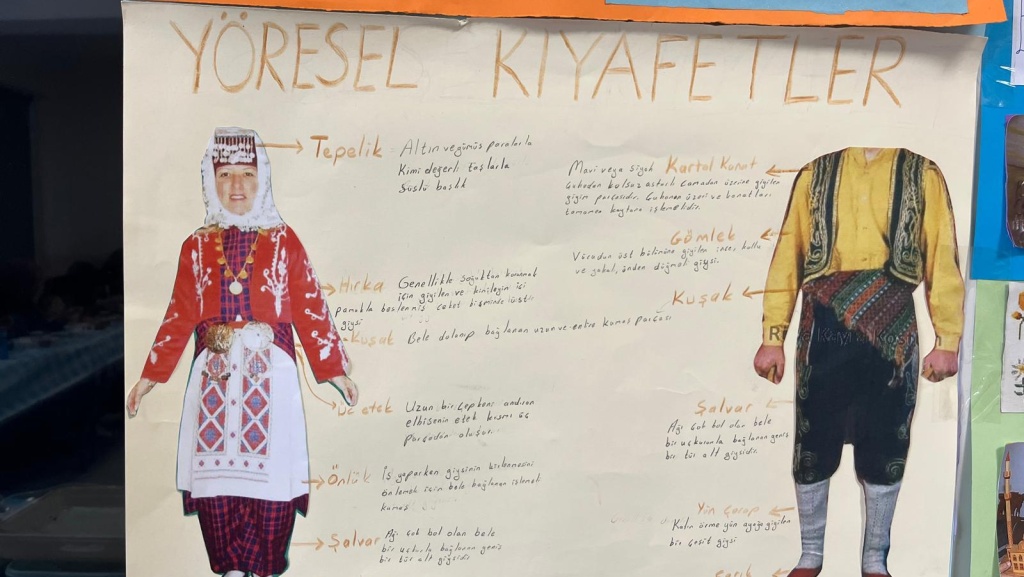 YÖRESEL KIYAFETLER
Tepelik
Altın ve gümüş paralarla
Kimi değerli taşlarla
Süslü başlık
Hırka
Genellikle soğuktan korunmak
için giyilen ve kimileyin içi
pamukla beslenmiş ceket biçiminde üst
giysi
Kuşak Bele dolayıp bağlanan uzun ve enine kumaş parçası
Üç etek
Uzun bir cepkeni andıran
elbisenin etek kısmı üç
parçadan oluşur.
Önlük
İş yaparken giysinin kirlenmesini
önlemek için bele bağlanan işlemeli
kumaş
Şalvar
Ağı çok bol olan bele
bir uçkurla bağlanan geniş
bir tür alt giysidir
Mavi veya siyah Kartal Kanat
giyim parçasıdır.
tamamen kaytana işlemelidir.
Gömlek
Vücudun üst bölümüne giyilen ince, kollu
ve yakalı, önden düğmeli giysi.
Kuşak
Şalvar
Ağı çok bol olan bele
bir uçkurla bağlanan geniş
bir tür alt giysidir.
Yün Çorap
Kalın örme yün ayağa giyilen
bir çeşit giysi
Çarık